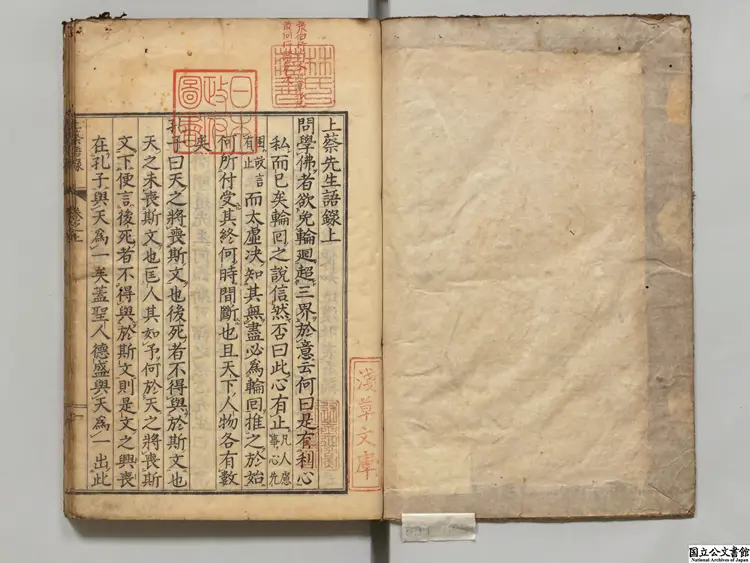 上蔡先生語錄上
問學佛者欲免輪廻超三界於意云何曰是有利心
私而已矣輪回之說信然否曰此心有止凡人慮事心先
困故言有止而太虛决知其無盡必為輪回推之於始
何所付受其終何時間斷也且天下人物各有數
矣
孔子曰天之將喪斯文也後死者不得與於斯文也
天之未喪斯文也匡人其如予何於天之將喪斯
文下便言後死者不得與於斯文則是文之興喪
在孔子與天為一矣蓋聖人德盛與天為一出此
淺草文庫
日本政府圖書
国立公文書館
National Archives of Japan